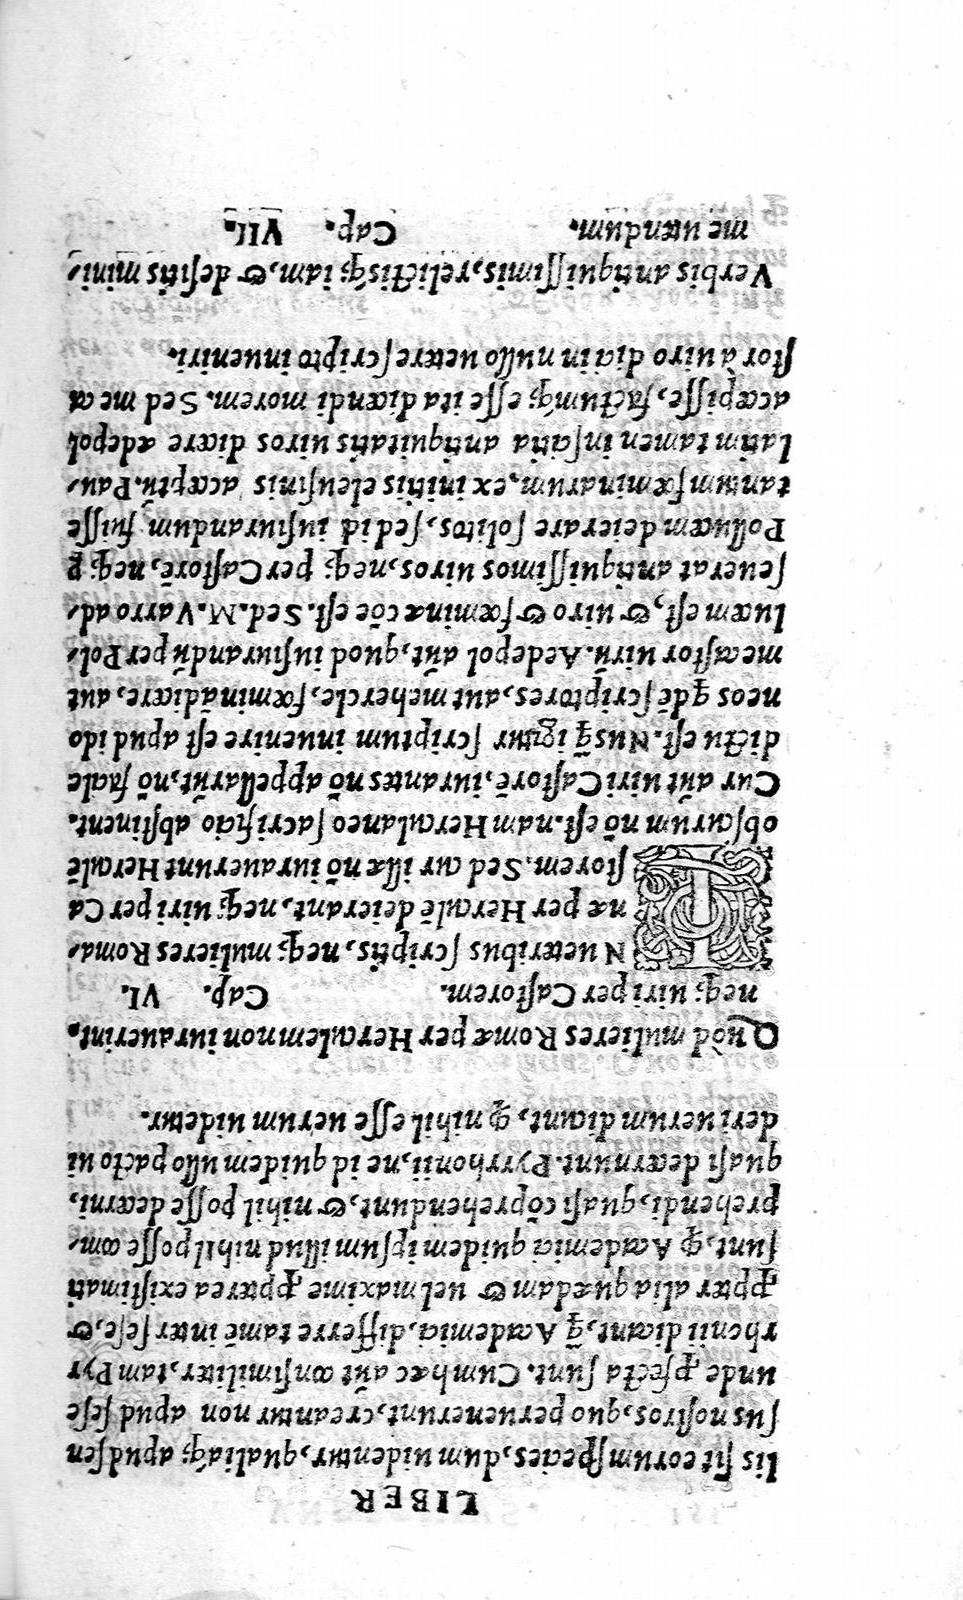 LIBER
lis sit eorum species, dum uidentur, qualiaq́; apud sen
sus nostros, quo peruenerunt, creantur non apud sese
unde ꝓfecta sunt. Cum hæc aũt consimiliter, tam Pyr
rhonii dicunt, q̃ Academici, differre tamẽ inter sese, &
ꝓpter alia quædam & uel maxime ꝓpterea existimati
sunt, ꝙ Academici quidem ipsum illud nihil posse com⸗
prehendi, quasi cõprehendunt, & nihil posse decerni,
quasi decernunt. Pyrrhonii, ne id quidem ullo pacto ui
deri uerum dicunt, ꝙ nihil esse uerum uidetur.
Quòd mulieres Romæ per Herculem non iurauerint,
neq; uiri per Castorem. Cap. VI.
IN ueteribus scriptis, neq; mulieres Roma⸗
næ per Herculẽ deierant, neq; uiri per Ca
storem. Sed cur illæ nõ iurauerunt Herculẽ
obscurum nõ est. nam Herculaneo sacrificio abstinent.
Cur aũt uiri Castorẽ, iurantes nõ appellarũt, nõ facile
dictu est. Nusq̃ igitur scriptum inuenire est apud ido
neos qdẽ scriptores, aut mehercle, fœminã dicere, aut
mecastor uirũ. Aedepol aũt, quod iusiurandũ per Pol⸗
lucem est, & uiro & fœminæ cõe est. Sed. M. Varro ad⸗
seuerat antiquissimos uiros, neq; per Castorẽ, neq; ꝑ
Pollucem deierare solitos, sed id iusiurandum fuisse
tantum fœminarum, ex initiis eleusinis acceptũ. Pau⸗
latim tamen inscitia antiquitatis uiros dicere ædepol
accœpisse, factumq́; esse ita dicendi morem. Sed me ca
stor à uiro dici in nullo uetere scripto inueniri.
Verbis antiquissimis, relictisq́; iam, & desitis mini⸗
me utendum. Cap. VII.